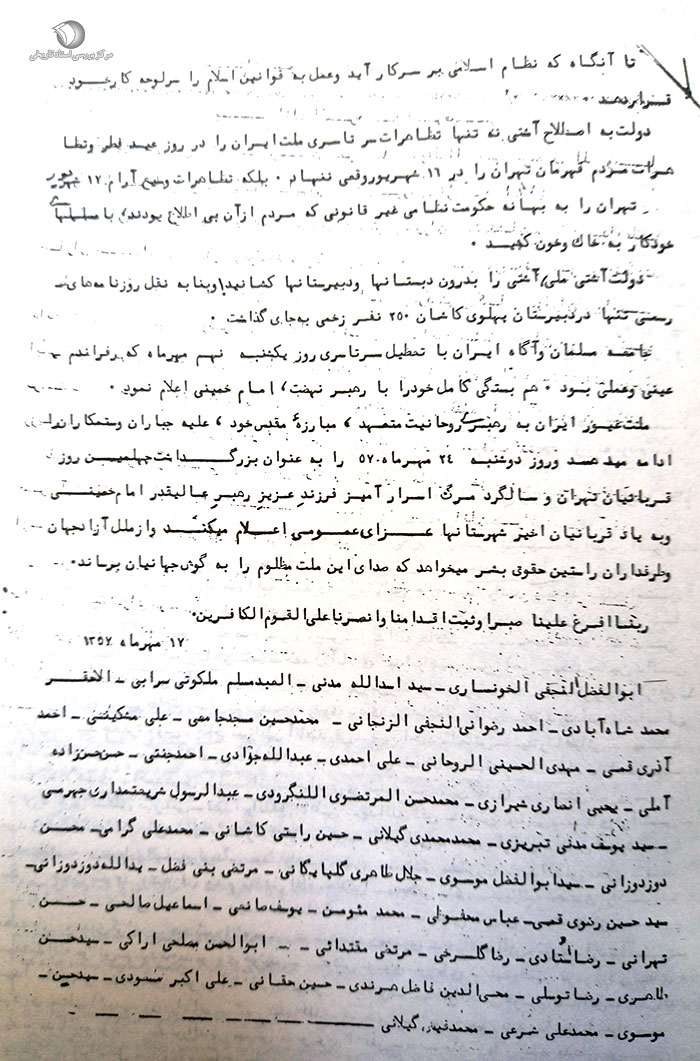 مرکز بررسی اسناد تاریخی
تا آنگاه که نظام اسلامی بر سرکار آید وعمل به قوانین اسلام را سرلوحه کارخود
قراردهند
دولت به اصطلاح آشتی نه تنها تظاهرات سرتاسری ملت ایران را در روز عید فطر وتظا
هرات مردم قهرمان تهران را در ۱۶ شهریوروقعی ننهاد ۰ بلکه تظاهرات وسیع آرام ۱۷ شهریور
تهران را به بهانه حکومت نظامی غیر قانونی که مردم ازآن بی اطلاع بودند، با مسلسلهای
خودکار به خاك وخون کشید ۰
دولت آشتی ملی، آشتی را بدرون دبستانها ودبیرستانها کشانید، وبنا به نقل روزنامه های
رسمی تنها دردبیرستان پهلوی کاشان ۲۵۰ نفر زخمی به جای گذاشت ۰
جامعه مسلمان وآگاه ایران با تعطیل سرتاسری روز یکشنبه نهم مهرماه که رفراندم
عینی وعملی بود ۰ هم بستگی کامل خودرا با رهبر نهضت، امام خمینی اعلام نمود ۰
ملت غیور ایران به رهبری روحانیت متعهد، مبارزهٔ مقدس خود، علیه جباران وستمکاران را
ادامه میدهد وروز دوشنبه ۲۴ مهرماه ۵۷ را به عنوان بزرگداشت چهلمین روز
قربانیان تهران و سالگرد مرگ اسرار آمیز فرزند عزیز رهبر عالیقدر امام خمینی
وبه یاد قربانیان اخیر شهرستانها عزای عمومی اعلام میکند وازملل آزادجهان
وطرفداران راستین حقوق بشر میخواهد که صدای این ملت مظلوم را به گوش جهانیان برساند۰
ربنا افرغ علینا صبرا وثبت اقدامنا وانصرنا علی القوم الکافرین۰
۱۷ مهرماه ۱۳۵۷
ابوالفضل النجفی الخونساری ـ سید اسدالله مدنی ـ العبد مسلم ملکوتی سرابی ـ الاحقر
محمد شاه آبادی ـ احمد رضوانی النجفی الزنجانی ـ محمدحسین مسجدجامعی ـ علی مشکینی ـ احمد
آذری قمی ـ مهدی الحسینی الروحانی ـ علی احمدی ـ عبدالله جوادی ـ احمدجنتی ـ حسن حسن زاده
آملی ـ یحیی انصاری شیرازی ـ محمدحسن المرتضوی اللنگرودی ـ عبدالرسول شریعتمداری جهرمی
ـ سید یوسف مدنی تبریزی ـ محمدمحمدی گیلانی ـ حسین راستی کاشانی ـ محمدعلی گرامی ـ محسن
دوزدوزانی ـ سیدابوالفضل موسوی ـ جلال طاهری گلپایگانی ـ مرتضی بنی فضل ـ یدالله دوزدوزانی ـ
سید حسین رضوی قمی ـ عباس محفوظی ـ محمد مئومن ـ یوسف صانعی ـ اسماعیل صالحی ـ حسن
تهرانی ـ رضا استادی ـ رضا گلسرخی ـ مرتضی مقتدائی ـ ـ ابوالحسن مصلحی اراکی ـ سیدحسن
طاهری ـ رضا توسلی ـ محی الدین فاضل هرندی ـ حسین حقانی ـ علی اکبر مسعودی ـ سیدحسین ـ
موسوی ـ محمدعلی شرعی ـ محمد گیلانی